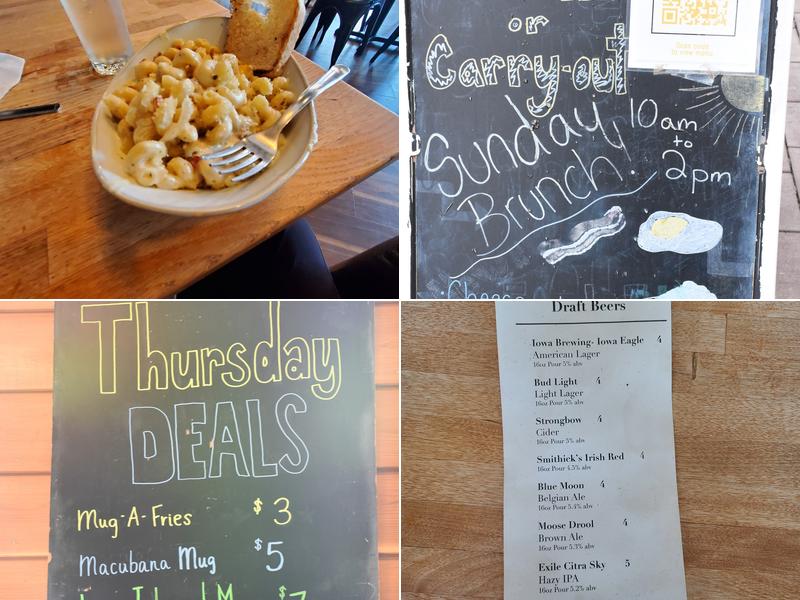 or
Carry-out
Scan code
to view menu
Sunday
Brunch!
10am
to
2pm
Thursday
DEALS
Mug-A-Fries $3
Macubana Mug $5
Draft Beers
Iowa Brewing- Iowa Eagle 4
American Lager
16oz Pour 5% abv
Bud Light 4
Light Lager
16oz Pour 5% abv
Strongbow 4
Cider
16oz Pour 5% abv
Smithick's Irish Red 4
16oz Pour 4.5% abv
Blue Moon 4
Belgian Ale
16oz Pour 5.4% abv
Moose Drool 4
Brown Ale
16oz Pour 5.3% abv
Exile Citra Sky 5
Hazy IPA
16oz Pour 5.2% abv